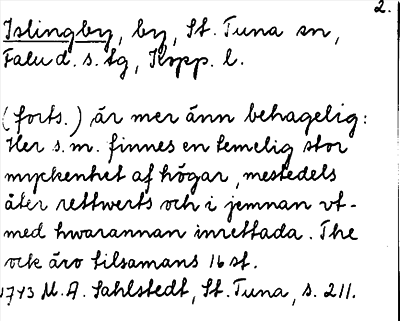 2.
Islingby, by, St. Tuna sn,
Falu d. s. tg, Kopp. l.
(forts.) är mer änn behagelig:
Her s.m. finnes en temelig stor
myckenhet af högar, mestedels
åter rettwerts och i jemnan vt-
med hwarannan inrettada. The
ock äro tilsamans 16 st.
1743 M. A. Sahlstedt, St. Tuna, s. 211.